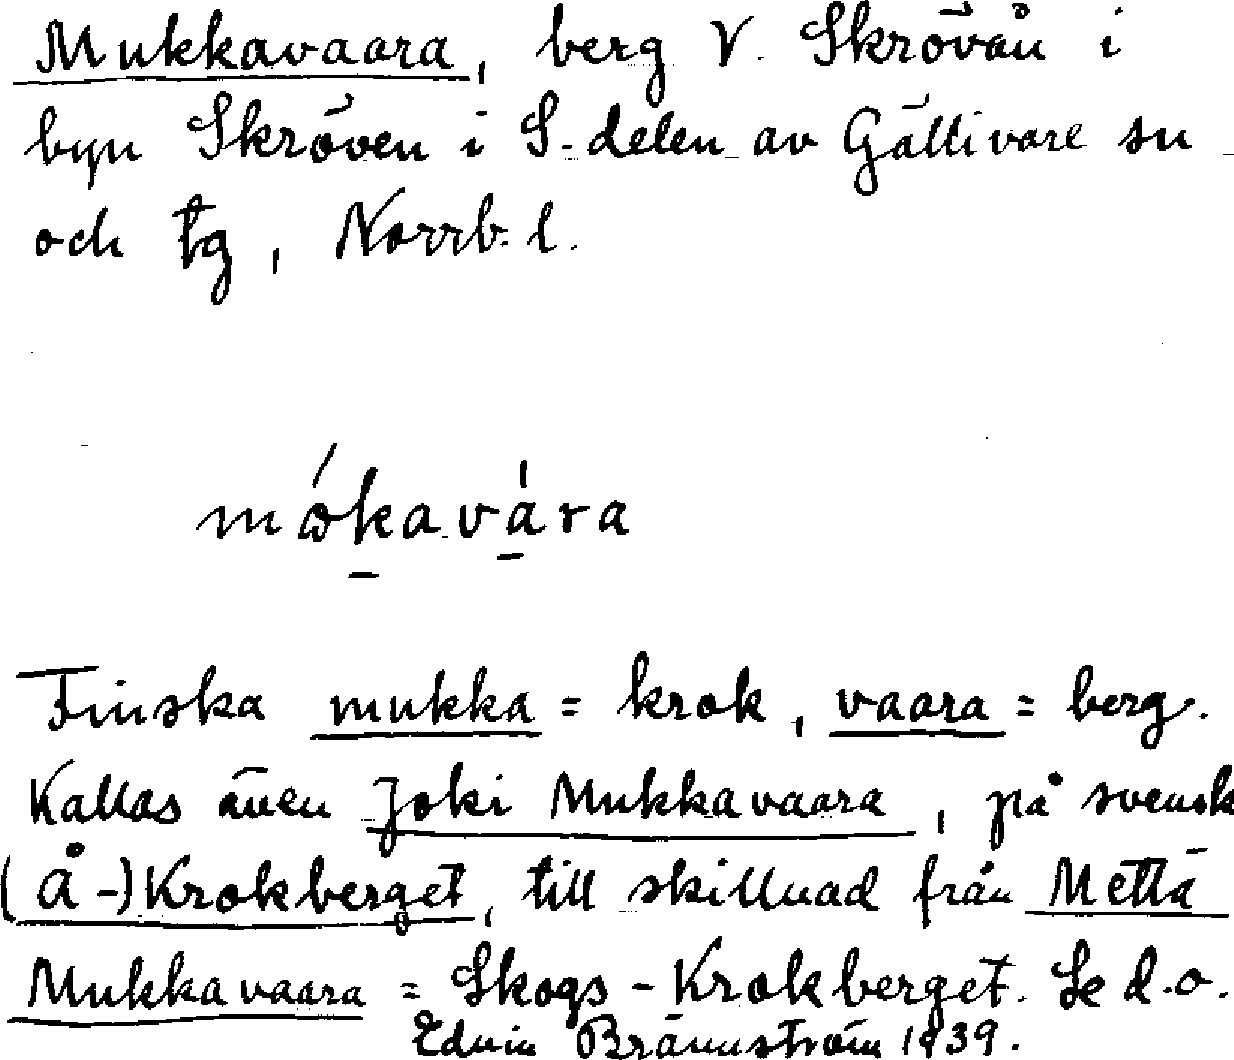 Mukkavaara, berg V. Skrövån i
byn Skröven i S. delen av Gällivare sn
och tg, Norrb. l.
mókavára
Finska mukka = krok, vaara = berg.
Kallas även Joki Mukkavaara, på svensk
(Å-)Krokberget, till skillnad från Mettä
Mukkavaara = Skogs-Krokberget. Se d.o.
Edvin Brännström 1939.